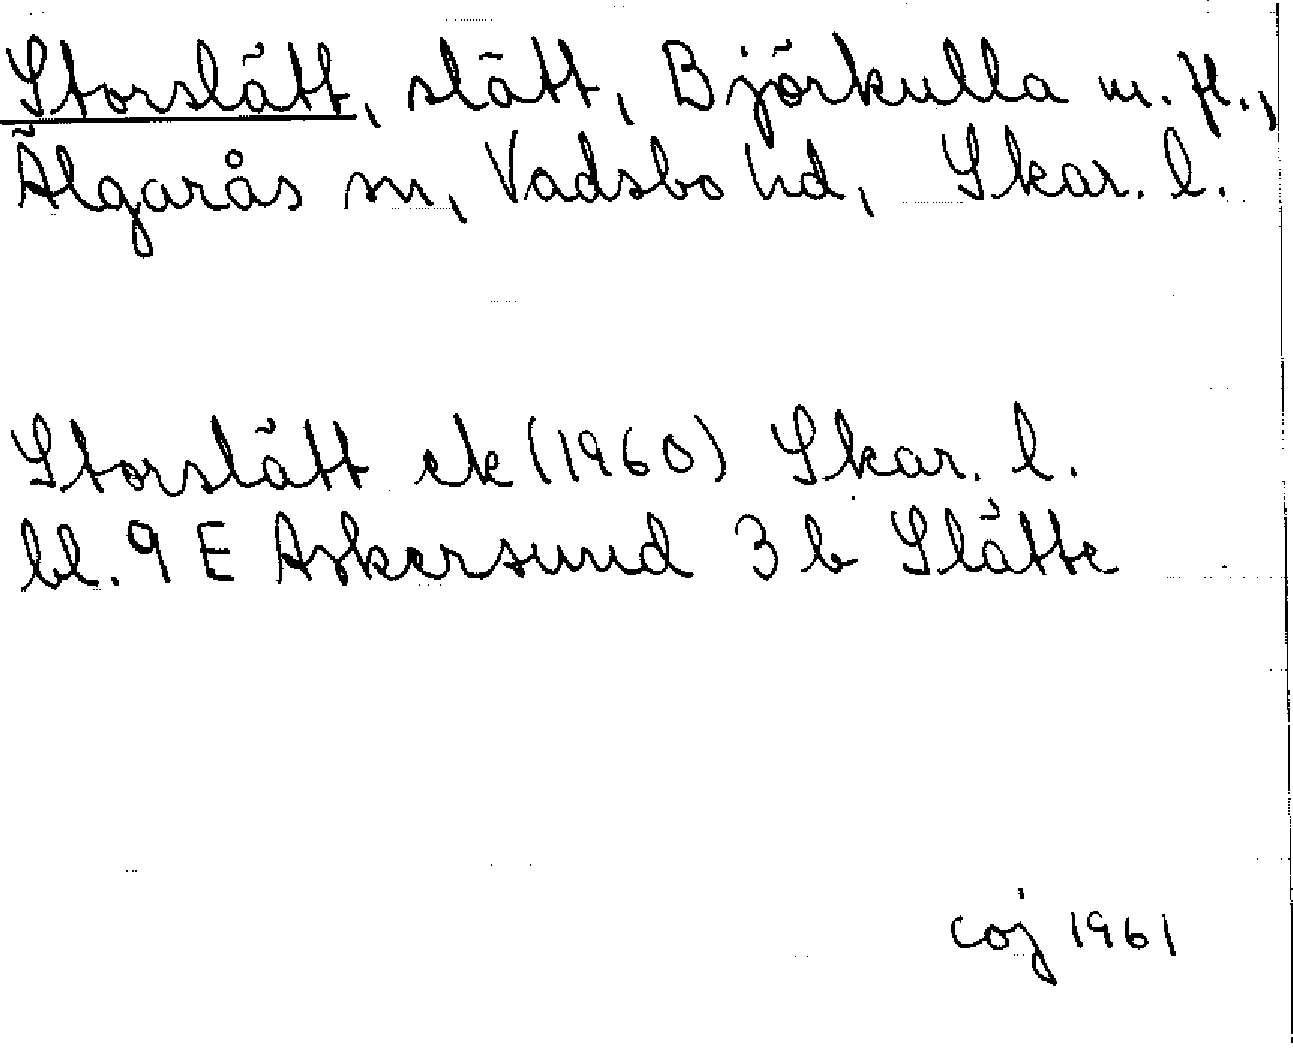 Storslätt, slätt, Björkulla m. fl.,
Älgarås sn, Vadsbo hd, Skar. l.
Storslätt ek (1960) Skar. l.
bl. 9 E Askersund 3 b Slätte
coj 1961